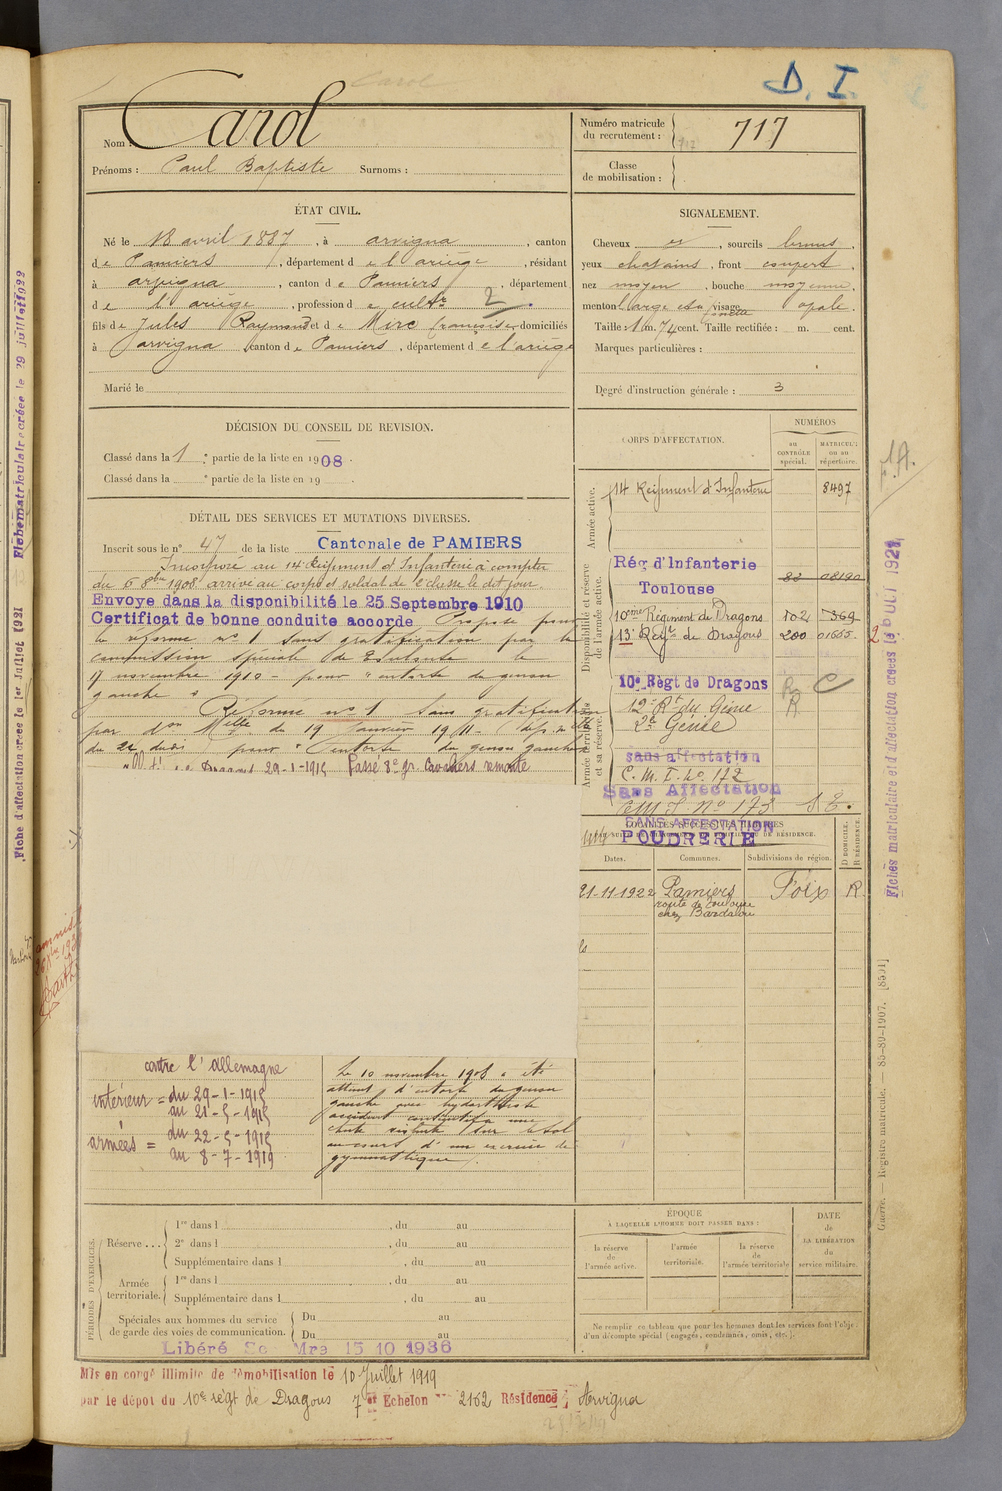 D. I.
Nom : Carol
Prénoms : Paul Baptiste Surnoms :
Numéro matricule
du recrutement : 717
Classe
de mobilisation :
ÉTAT CIVIL.
Né le 18 avril 1887, à arvigna, canton
de Pamiers, département de l'ariège, résidant
à arvigna, canton de Pamiers, département
de l'ariège, profession de cultr 2
fils de Jules Raymond et de Mirc françoise domiciliés
à arvigna canton de Pamiers, département de l'ariège
Marié le
SIGNALEMENT.
Cheveux et, sourcils bruns,
yeux chatains, front couvert,
nez moyen, bouche moyenne,
menton large visage ovale.
Taille : 1 m. 74 cent. Taille rectifiée : m. cent.
Marques particulières :
Degré d'instruction générale : 3
DÉCISION DU CONSEIL DE REVISION.
Classé dans la 1 e partie de la liste en 1908.
Classé dans la e partie de la liste en 19 .
DÉTAIL DES SERVICES ET MUTATIONS DIVERSES.
Inscrit sous le n° 47 de la liste Cantonale de PAMIERS
Incorporé au 14e Régiment d'Infanterie à compter
du 6 8bre 1908 arrivé au corps et soldat de 2e classe le dit jour.
Envoyé dans la disponibilité le 25 Septembre 1910
Certificat de bonne conduite accordé Proposé pour
la réforme n° 1 sans gratification par la
commission spéciale de Toulouse le
17 novembre 1910 - pour "entorse du genou
gauche"
Réformé n° 1 sans gratification
par don Melle du 19 Janvier 1911
du 22 dudit pour "entorse du genou gauche
Dragons 29-1-1915 Passé 8e gr. Cavaliers remonte
CORPS D'AFFECTATION.
NUMÉROS
au
CONTRÔLE
spécial.
MATRICULE
ou au
répertoire.
Armée active.
14 Régiment d'Infanterie 8497
Disponibilité et réserve
de l'armée active.
Rég d'Infanterie
Toulouse
10ème Régiment de Dragons 102 369
13e Regt de Dragons 200 01665
2
Armée territoriale
et sa réserve.
10e Règt de Dragons
R C
R
19e Rt du Génie
2e Génie
sans affectation
C. M. I. no 172
Sans Affectation
CMI No 173
SANS AFFECTATION
POUDRERIE
Dates. Communes. Subdivisions de région. D. DOMICILE. R. RÉSIDENCE.
21-11-1922 Pamiers Foix R.
route de Toulouse
chez Bardalou
contre l'allemagne
intérieur = du 29-1-1915
au 21-5-1915
armées = du 22-5-1915
au 8-7-1919
Le 10 novembre 1908 a été
atteint d'entorse du genou
gauche avec hydarthrose
accident consécutif à une
chute sur le sol
au cours d'un exercice de
gymnastique.
PÉRIODES D'EXERCICES.
Réserve ....
1re dans l , du au
2e dans l , du au
Supplémentaire dans l , du au
Armée
territoriale.
1re dans l , du au
Supplémentaire dans l , du au
Spéciales aux hommes du service
de garde des voies de communication.
Du au
Du au
Libéré Sce Mre 15 10 1936
ÉPOQUE
À LAQUELLE L'HOMME DOIT PASSER DANS :
la réserve
de
l'armée active.
l'armée
territoriale.
la réserve
de
l'armée territoriale
DATE
de
LA LIBÉRATION
du
service militaire.
Ne remplir ce tableau que pour les hommes dont les services font l'objet
d'un décompte spécial (engagés, condamnés, omis, etc.).
Mis en congé illimité de démobilisation le 10 Juillet 1919
par le dépot du 10e régt de Dragons 7 et Echelon 2162 Résidence : Arvigna
Fiche d'affectation créée le 1er Juillet 1931
Fiche matriculaire créée le 29 juillet 1922
Fiches matriculaire et d'affectation créées le OCT 1921
Guerre. — Registre matricule. — 85-80-1907. [8501]